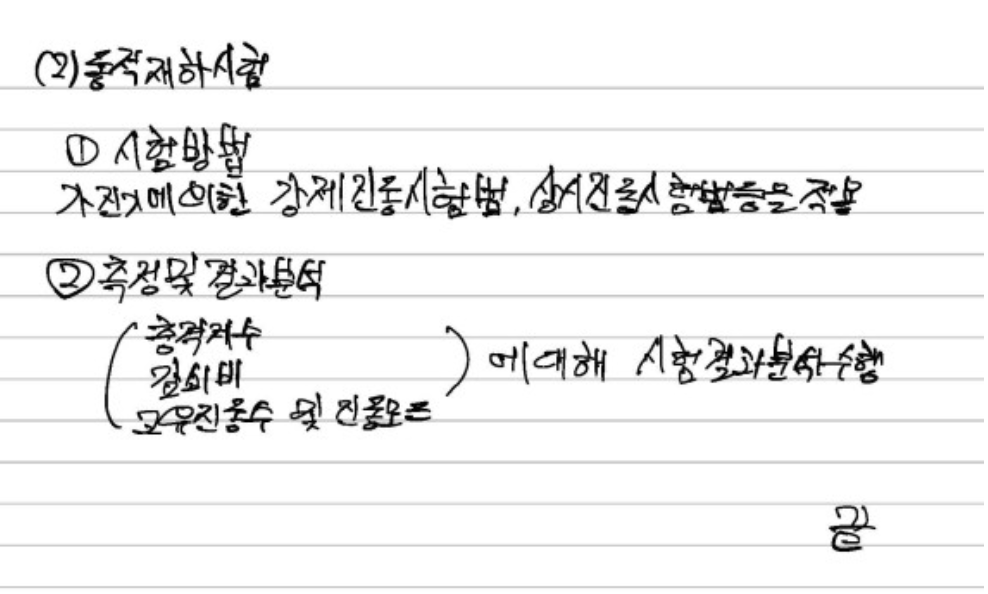 (2) 동적재하시험
① 시험방법
가진기에의한 강제진동시험법, 상시진동시험법등을 적용
② 측정및 결과분석
충격계수
감쇠비
고유진동수 및 진동모드
에대해 시험결과분석수행
끝